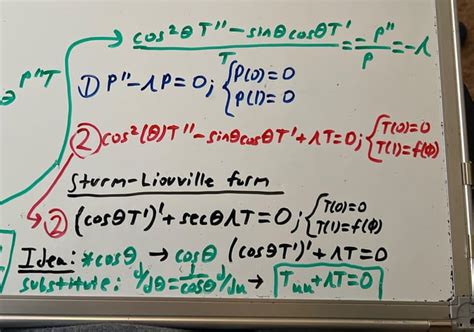 (cos²θT″ - sinθcosθT′)/T = -P″/P = -λ
P″T
① P″-λP=0; { P(0)=0
P(1)=0
② cos²(θ)T″-sinθcosθT′+λT=0; { T(0)=0
T(1)=f(Φ)
Sturm-Liouville form
② (cosθT′)′+secθλT=0; { T(0)=0
T(1)=f(Φ)
Idea: *cosθ → cosθ (cosθT′)′+λT=0
substitute: d/dθ = 1/cosθ d/du → T_uu+λT=0